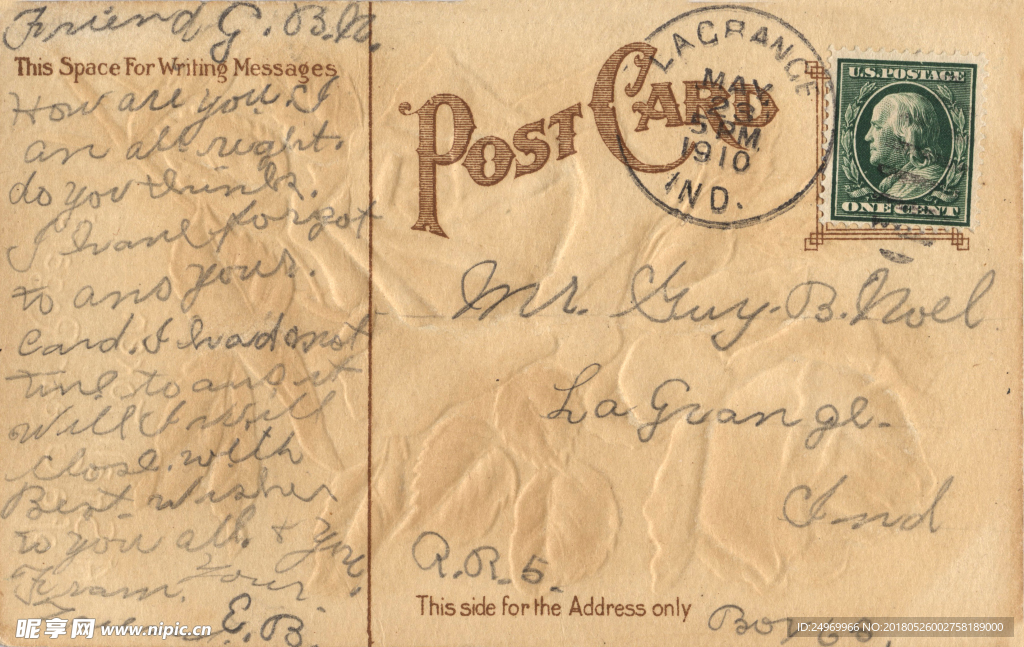 Friend G. B. N.
This Space For Writing Messages
How are you. I
am all right.
do you think.
I have forgot
to ans your.
card. I had not
time to ans it
Will I will
close. with
Best wishes
to you all. & you.
From. Your
E. B.
POST CARD
LAGRANGE
MAY
5 PM
1910
IND.
U.S. POSTAGE
ONE CENT
Mr. Guy. B. Noel
La Grange.
Ind
R.R. 5.
This side for the Address only
Box
昵享网 www.nipic.cn
ID:24969966 NO:20180526002758189000